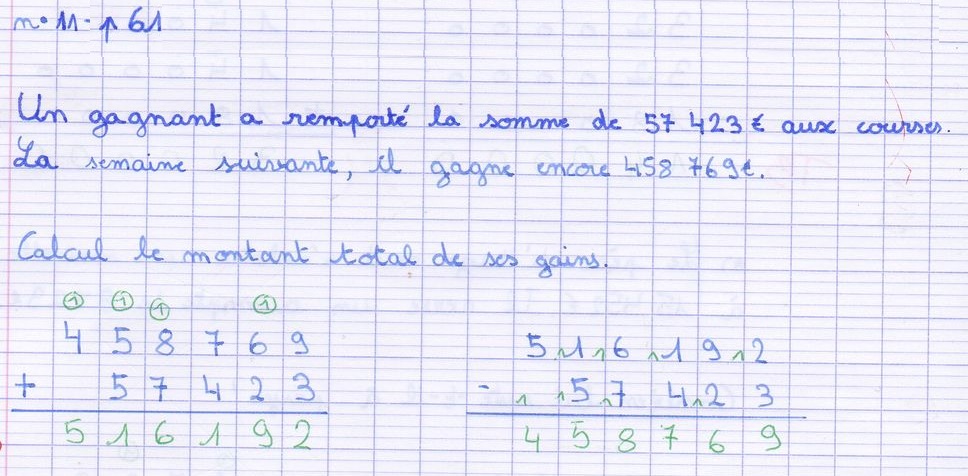 n° 11 - p 61
Un gagnant a remporté la somme de 57 423 € aux courses.
La semaine suivante, il gagne encore 458 769 €.
Calcul le montant total de ses gains.
1 1 1 1
4 5 8 7 6 9
+ 5 7 4 2 3
5 1 6 1 9 2
5 1 1 6 1 1 9 1 2
- 1 1 5 1 7 4 1 2 3
4 5 8 7 6 9